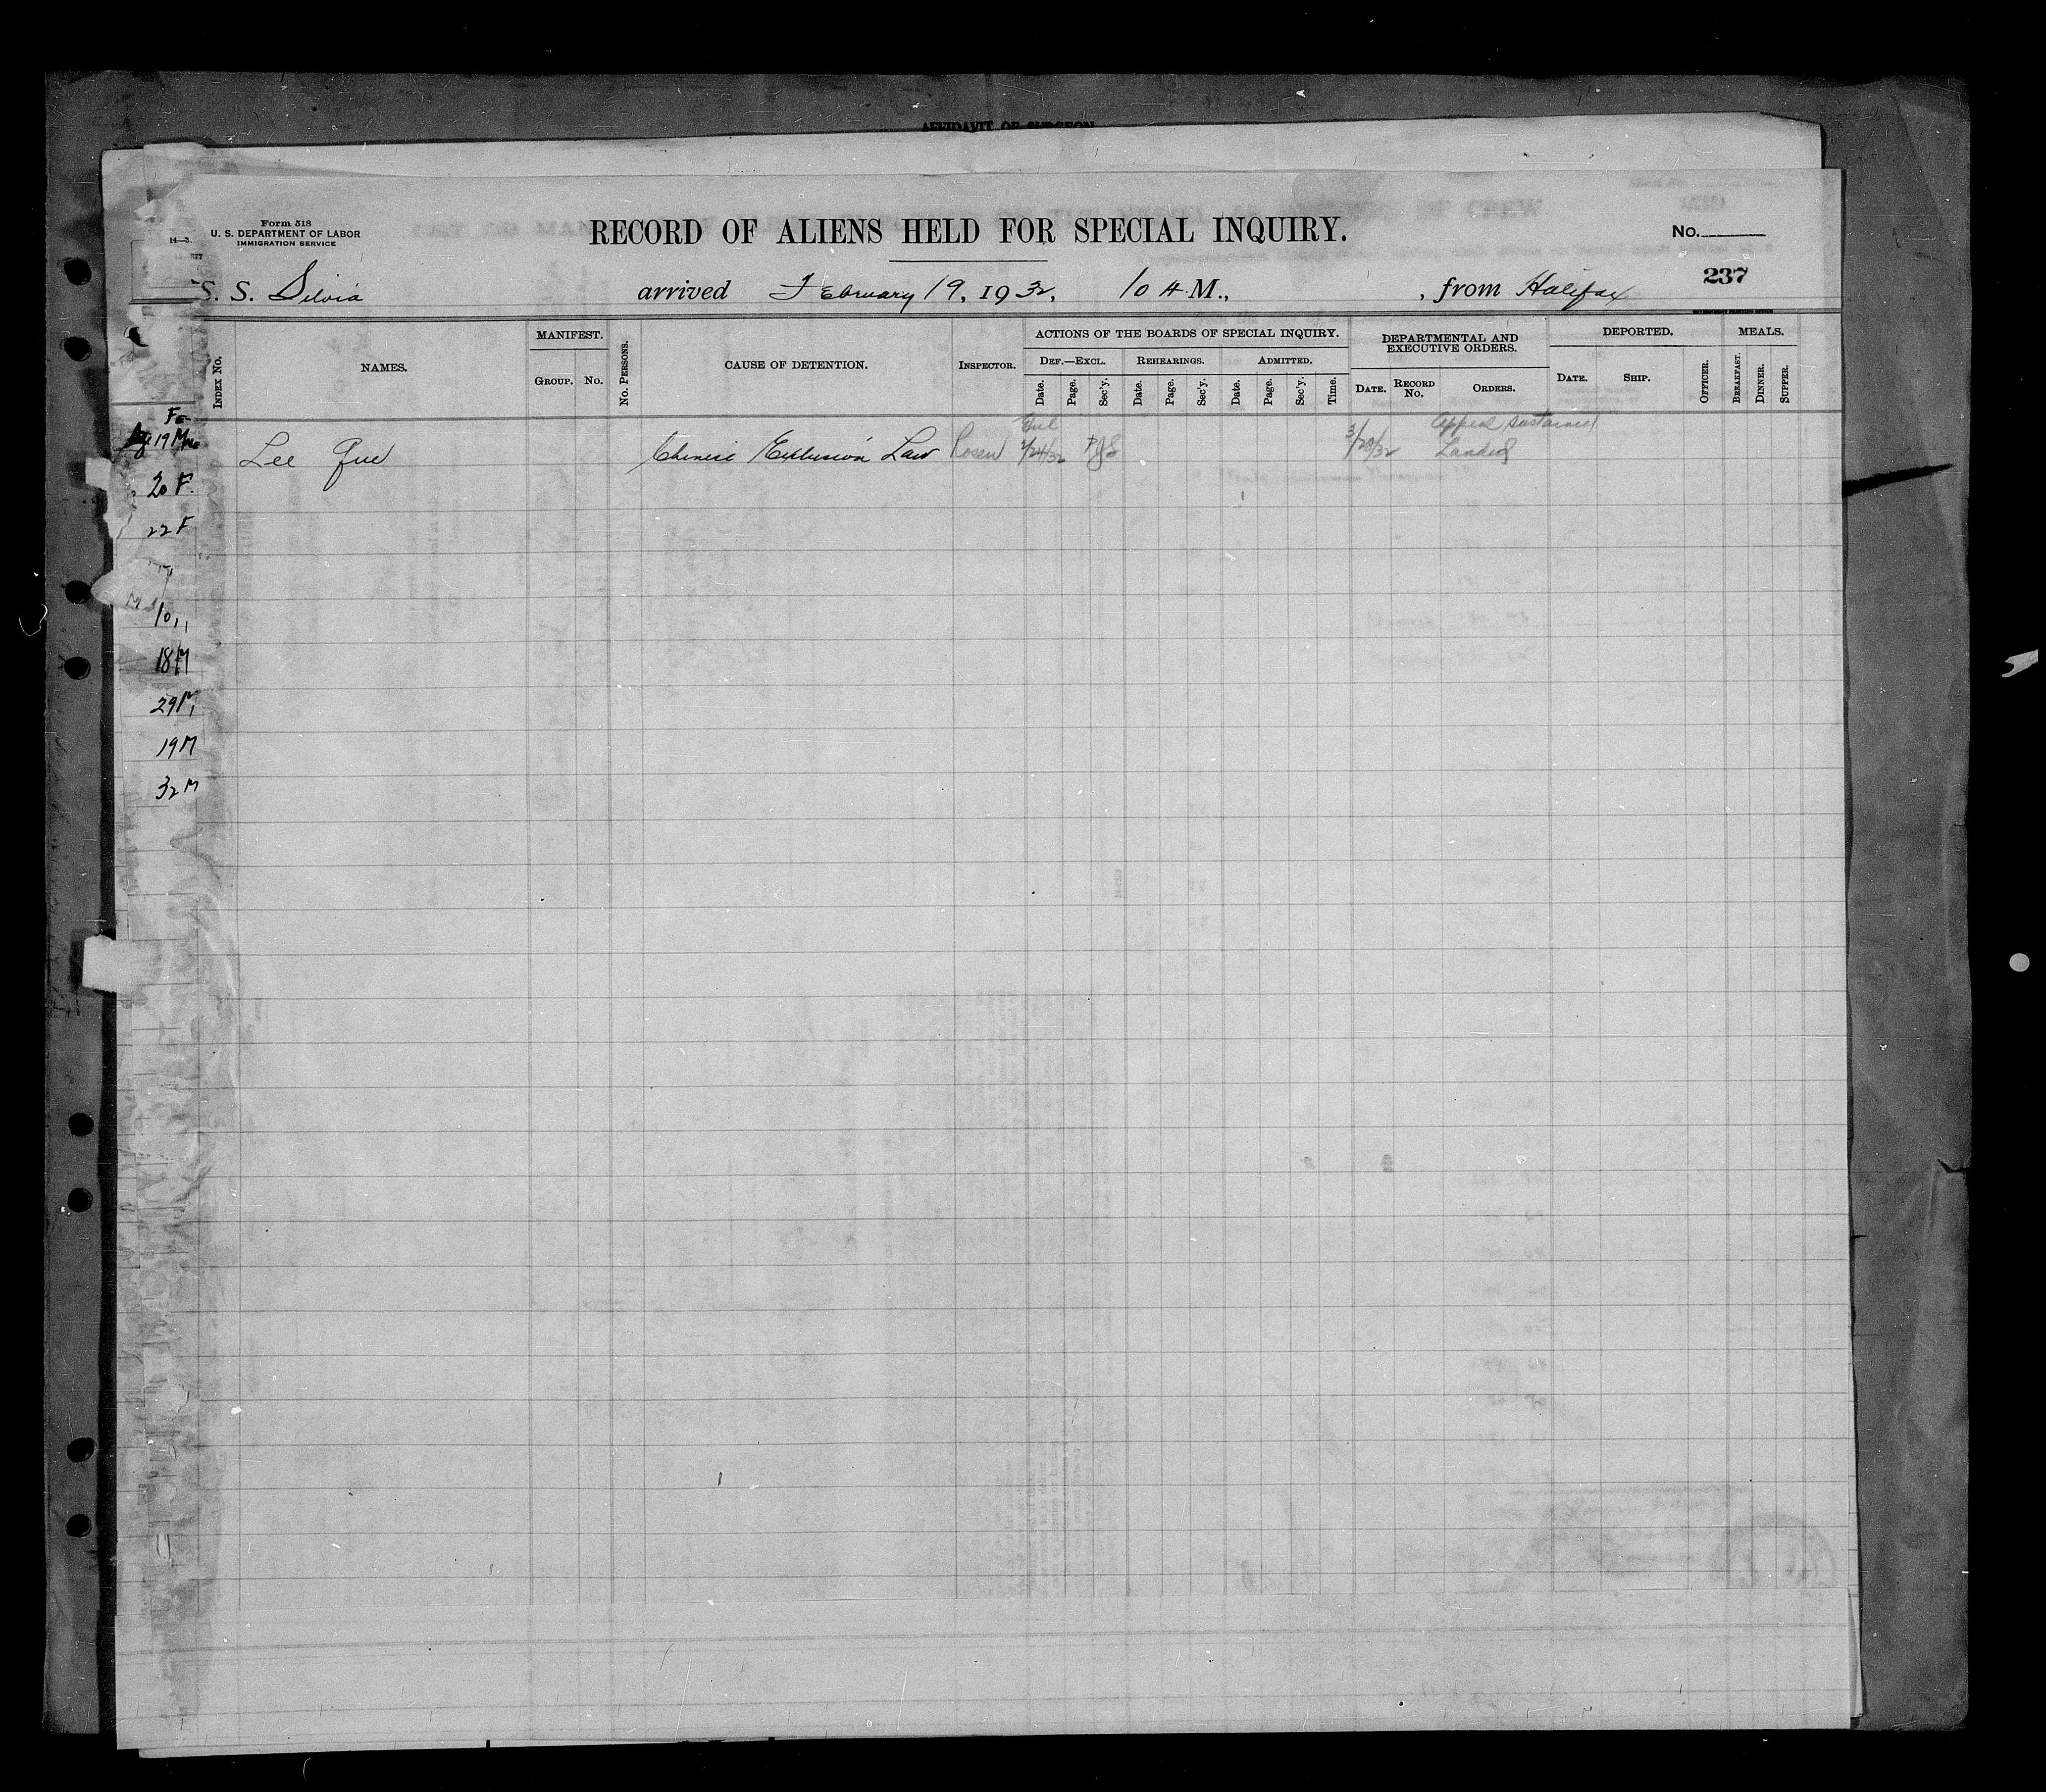 AFFIDAVIT OF SURGEON
Form 518
U. S. DEPARTMENT OF LABOR
IMMIGRATION SERVICE
14—3
RECORD OF ALIENS HELD FOR SPECIAL INQUIRY.
No.
237
S. S. Silvia arrived February 19, 1932, 10 A M., , from Halifax
INDEX No.
NAMES.
MANIFEST.
GROUP. No.
No. PERSONS.
CAUSE OF DETENTION.
INSPECTOR.
ACTIONS OF THE BOARDS OF SPECIAL INQUIRY.
DEF.—EXCL. REHEARINGS. ADMITTED.
Date. Page. Sec'y. Date. Page. Sec'y. Date. Page. Sec'y. Time.
DEPARTMENTAL AND
EXECUTIVE ORDERS.
DATE. RECORD No. ORDERS.
DEPORTED.
DATE. SHIP. OFFICER.
MEALS.
BREAKFAST. DINNER. SUPPER.
Appeal sustained
Lee Chinese Exclusion Law Rosen 2/24/32 3/28/32 Landed
20 F.
22 F
10 11
18 M
29 M
19 M
32 M